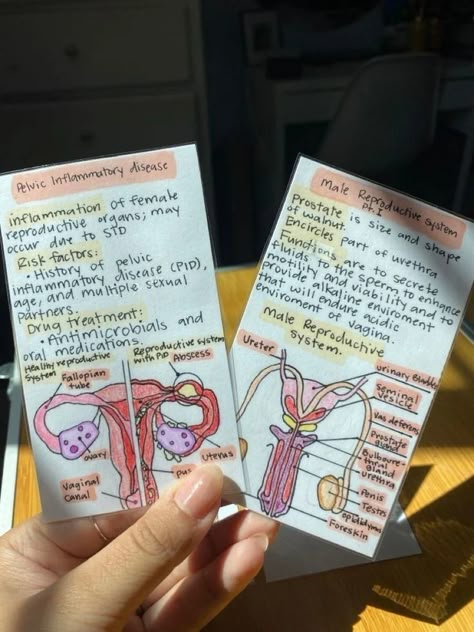 Pelvic Inflammatory disease
inflammation of female
reproductive organs; may
occur due to STD
Risk factors:
• History of pelvic
inflammatory disease (PID),
age, and multiple sexual
partners.
Drug treatment:
• Antimicrobials and
oral medications.
Healthy reproductive
system
Reproductive system
with PID
Abscess
Fallopian
tube
ovary
Uterus
Vaginal
canal
Male Reproductive System
Pt. 1
Prostate is size and shape
of walnut.
Encircles part of urethra
Functions are to secrete
fluids to the sperm to enhance
motility and viability and to
provide alkaline enviroment
that will endure acidic
enviroment of vagina.
Male Reproductive
System.
Ureter
Urinary Bladder
Seminal
vesicle
Vas deferens
Prostate
gland
Bulboure-
thral
gland
urethra
Penis
Testes
epididymus
Foreskin